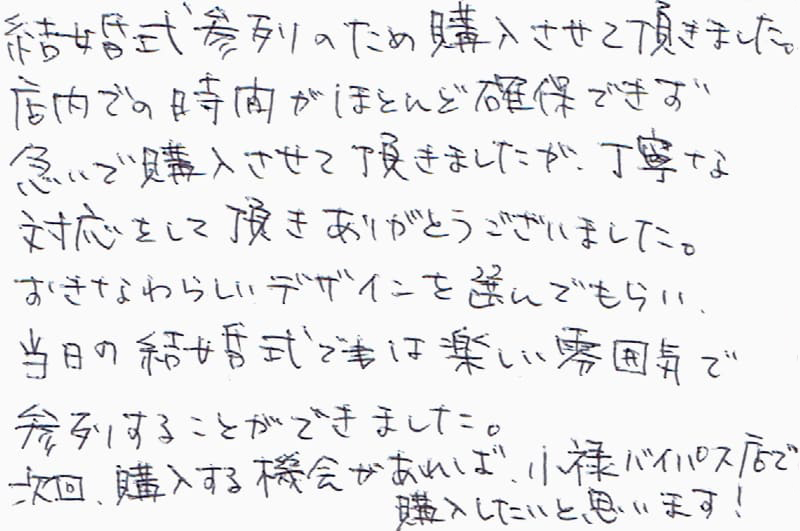 結婚式参列のため購入させて頂きました。
店内での時間がほとんど確保できず
急いで購入させて頂きましたが、丁寧な
対応をして頂きありがとうございました。
おきなわらしいデザインを選んでもらい、
当日の結婚式では楽しい雰囲気で
参列することができました。
次回、購入する機会があれば、小禄バイパス店で
購入したいと思います!